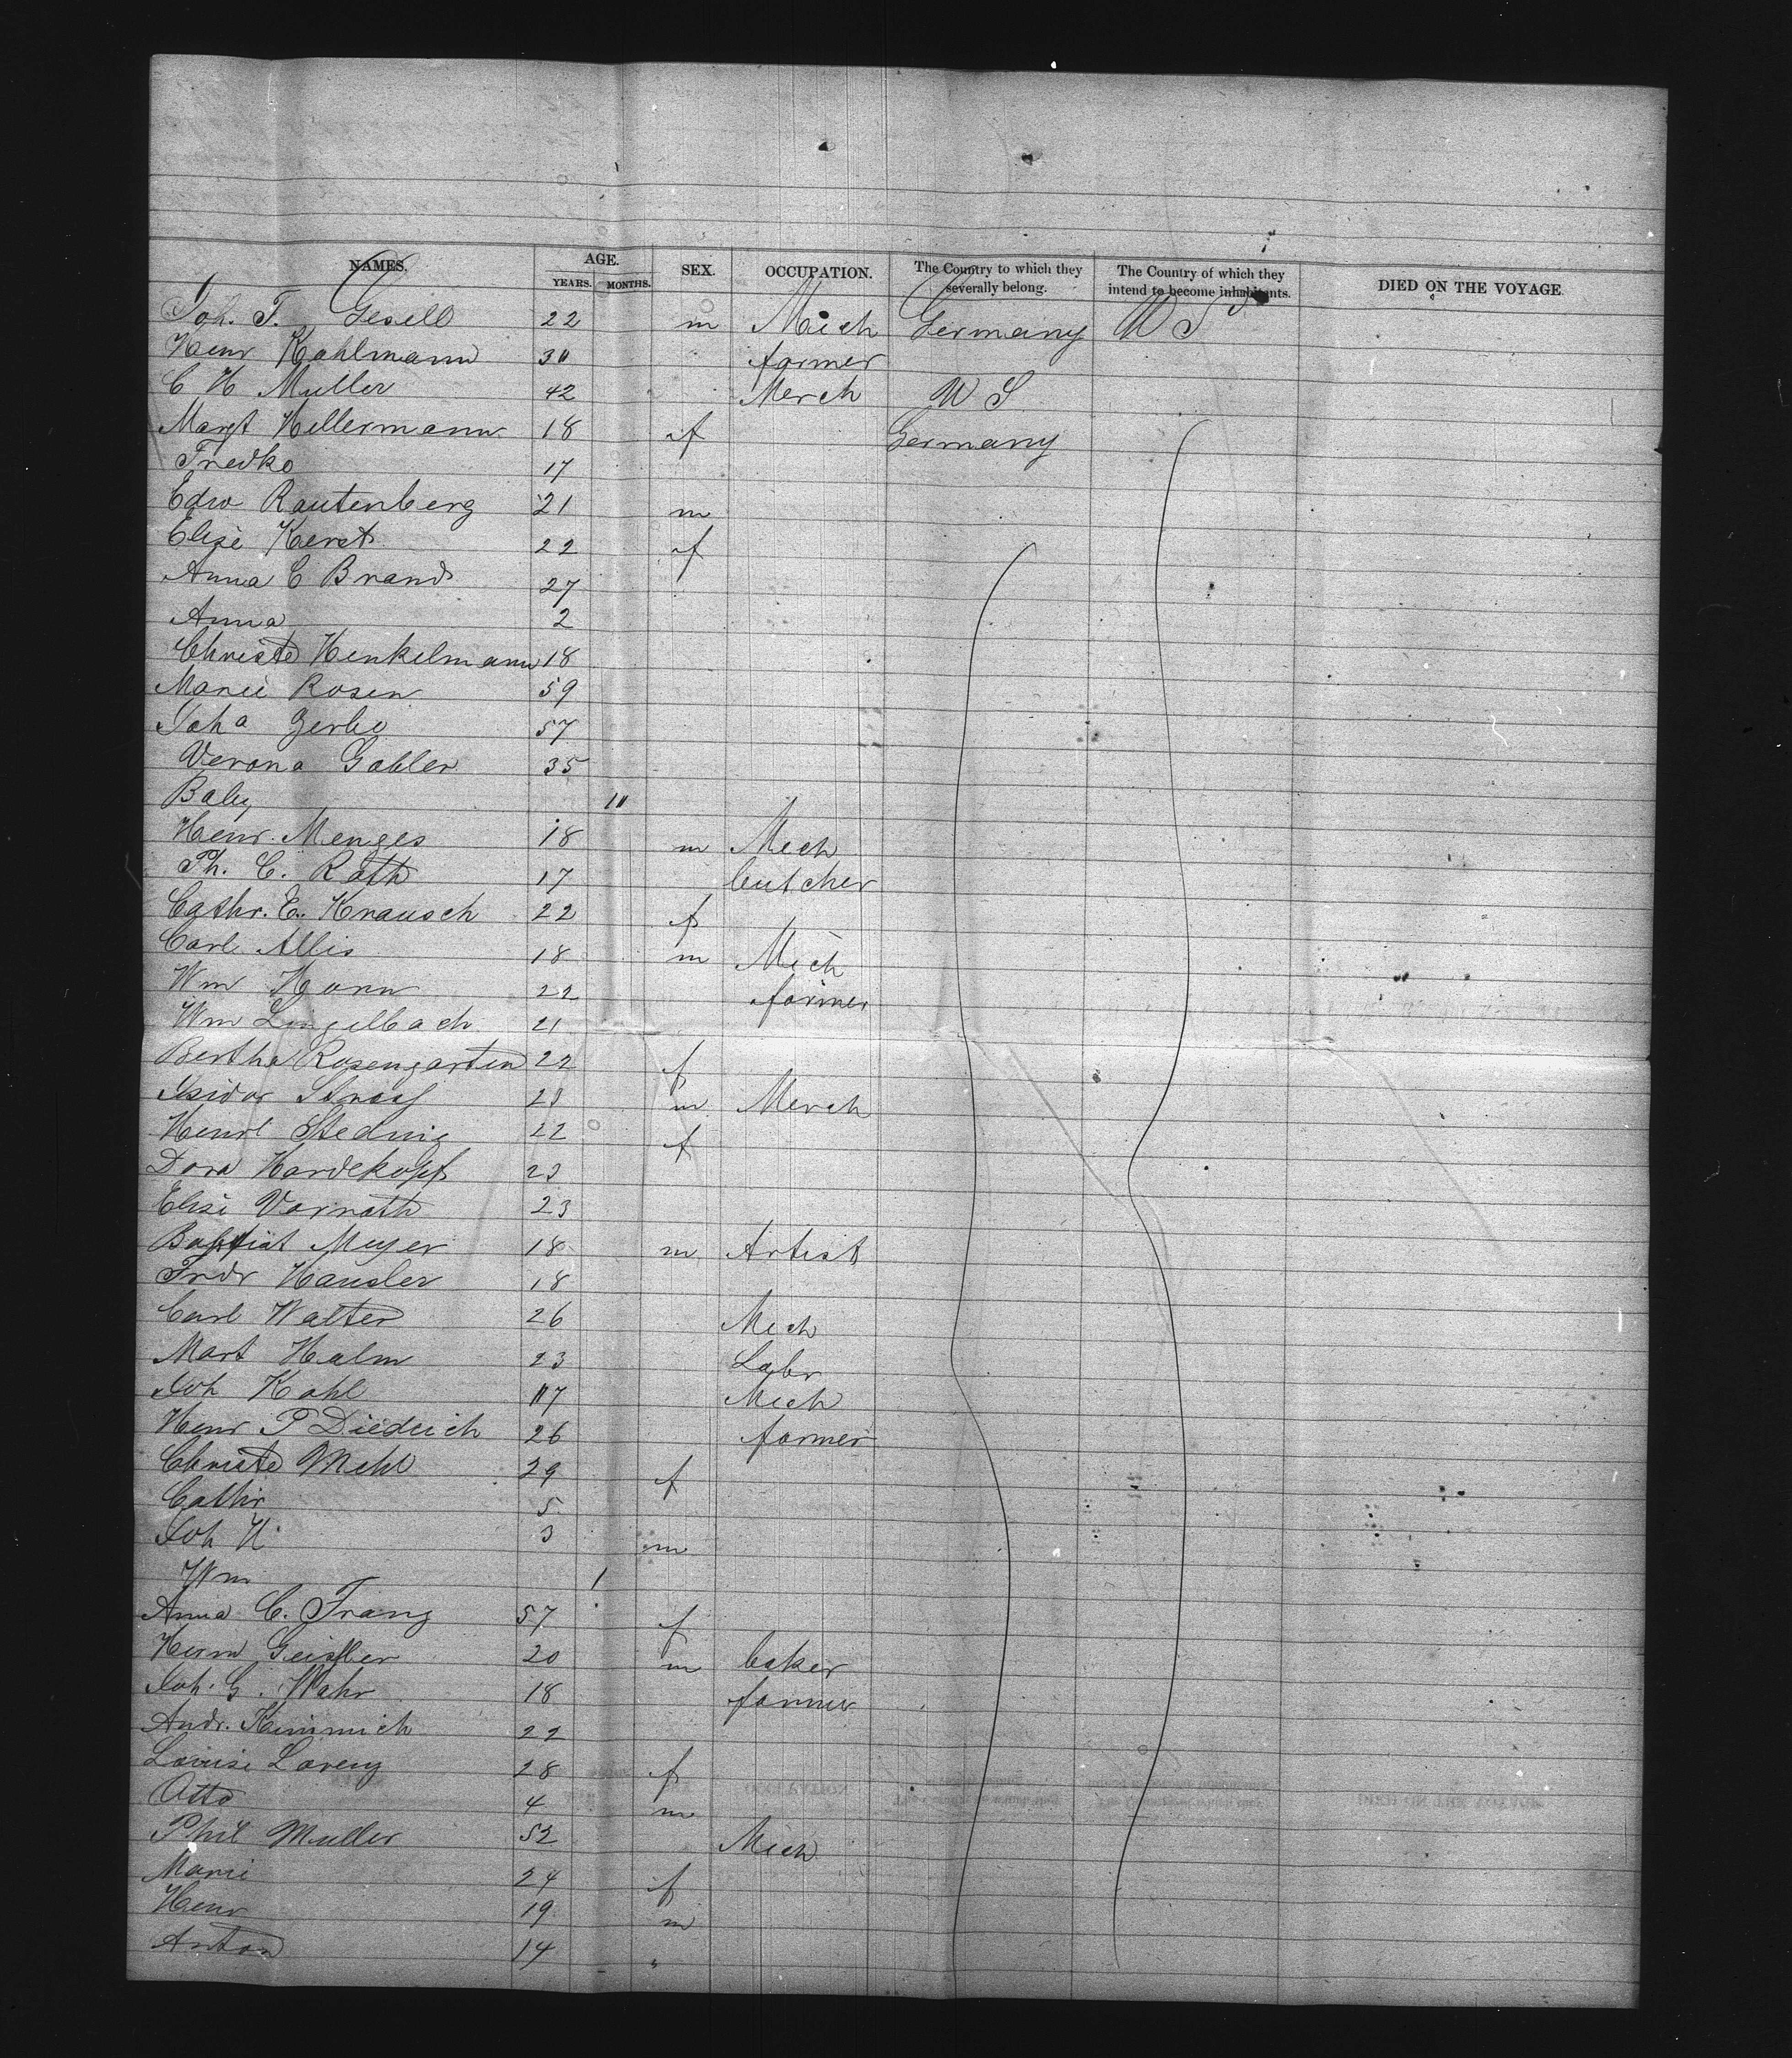 NAMES. AGE. SEX. OCCUPATION. The Country to which they severally belong. The Country of which they intend to become inhabitants. DIED ON THE VOYAGE
YEARS. MONTHS.
Joh. F. Gesell 22 m Mech Germany U S
Henr Kohlmann 30 farmer
C H Muller 42 Merch U S
Margt Hellermann 18 f Germany
Fredke 17
Edw Rautenberg 21 m
Elise Kerst 22 f
Anna C Brand 27
Anna 2
Christe Henkelmann 18
Marie Rosen 59
Joha Gerbe 57
Verona Gabler 35
Baby 10
Henr. Menges 18 m Mech
Ph. C. Rath 17 butcher
Cathr. E. Knausch 22 f
Carl Allis 18 m Mech
Wm Horn 22 farmer
Wm Lingelbach 21
Bertha Rosengarten 22 f
Isidor 23 m Merch
Henrt Steding 22 f
Dora Hardekopf 23
Elise Vornath 23
Baptist Meyer 18 m Artist
Fredr Hausler 18
Carl Walter 26 Mech
Mart Halm 23 Labr
Joh Kohl 17 Mech
Henr P Diedrich 26 farmer
Christe Mehl 29 f
Cathr 5
Joh H 3 m
Wm 1
Anna C. Franz 57 f
Herm Geissler 20 m baker
Joh. G. Wahr 18 farmer
Andr. Kimmich 22
Louise Lorenz 28 f
Otto 4 m
Phil Muller 52 Mech
Marie 24 f
Henr 19 m
Anton 14 "